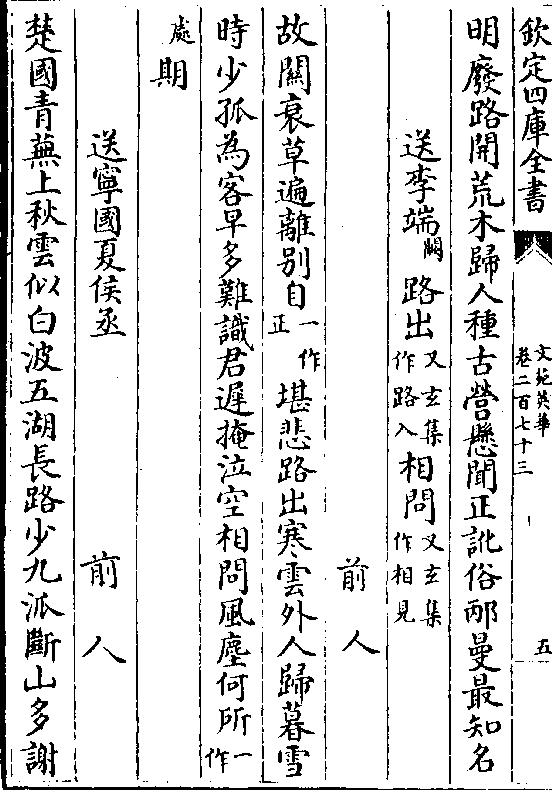 欽定四庫全書
文苑英華
卷二百七十三
五
明廢路開荒木歸人種古營懸聞正訛俗邴曼最知名
送李端闕路出又玄集作路入相問又玄集作相見
前人
故關衰草遍離别自一作正堪悲路出寒雲外人歸暮雪
時少孤為客早多難識君遲掩泣空相問風塵何所一作
處期
送寧國夏侯丞
前人
楚國青蕪上秋雲似白波五湖長路少九派斷山多謝